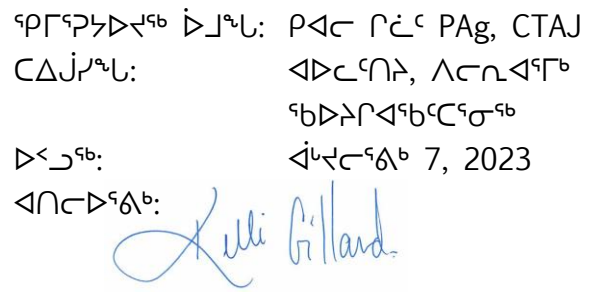 ᕿᒥᕐᕈᔭᐅᔪᖅ ᐆᒧᖓ: ᑭᐊᓕ ᒋᓛᑦ PAg, CTAJ
ᑕᐃᒎᓯᖓ: ᐊᐅᓚᑦᑎᔨ, ᐱᓕᕆᐊᕐᒥᒃ
ᖃᐅᔨᒋᐊᖃᑦᑕᕐᓂᖅ
ᐅᑉᓗᖅ: ᐋᒡᔪᓕᕐᕕᒃ 7, 2023
ᐊᑎᓕᐅᕐᕕᒃ:
Kelli Gillard